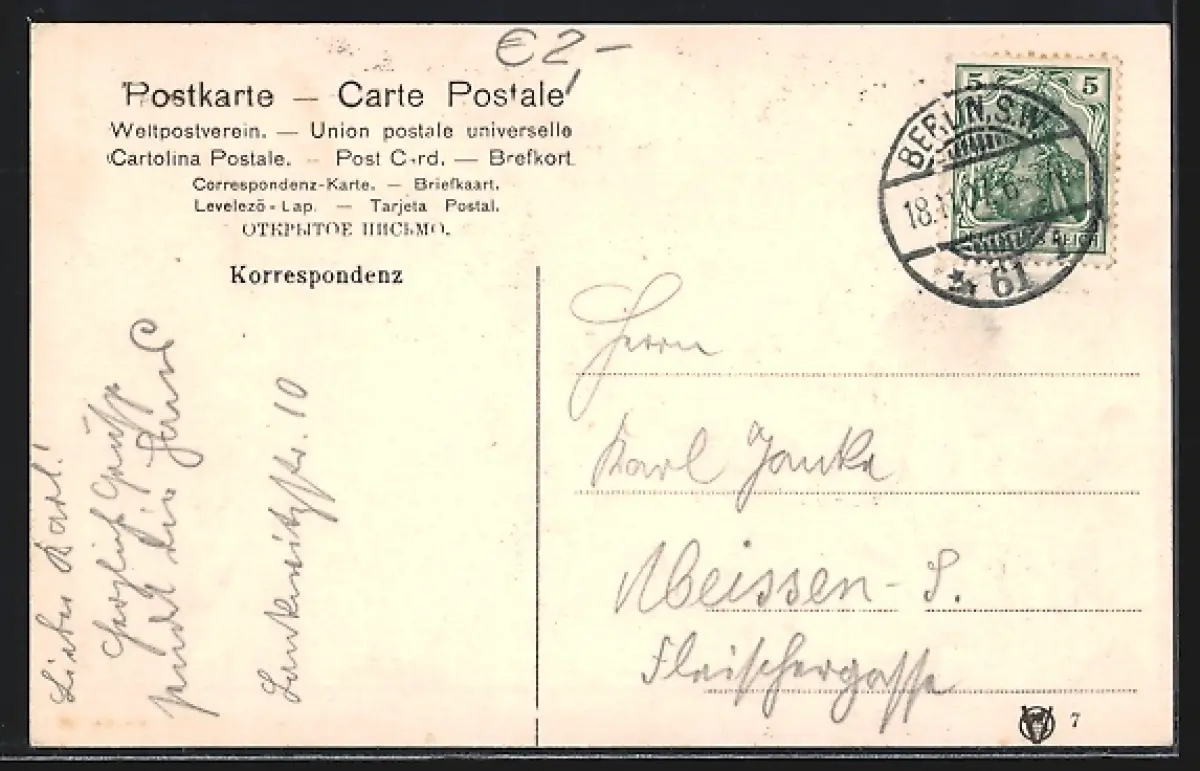 €2,-
Postkarte — Carte Postale
Weltpostverein. — Union postale universelle
Cartolina Postale. — Post Card. — Brefkort
Correspondenz-Karte. — Briefkaart.
Levelező-Lap. — Tarjeta Postal.
ОТКРЫТОЕ ПИСЬМО.
Korrespondenz
5 5
BERLIN, S.W.
18.
* 61
REICH
Lieber Karl!
Herzlich Grüße
sendet dir
Lankwitzstr. 10
Herrn
Karl Janke
Meissen - S.
Fleischergasse
7